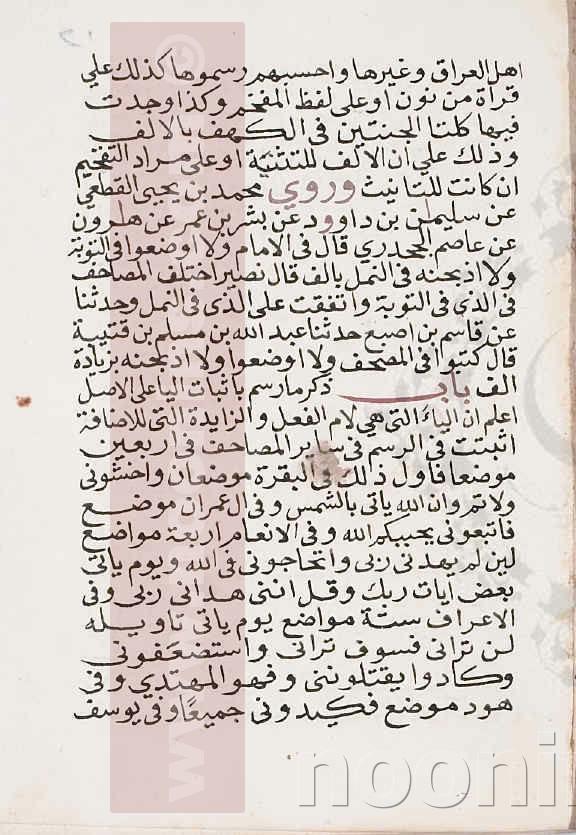 اهل العراق وغيرها واحسبهم رسموها كذلك علي
قرأة من نون او على لفظ المفخم وكذا وجدت
فيها كلتا الجنتين في الكهف بالالف
وذلك علي ان الالف للتثنية او على مراد التفخيم
ان كانت للتانيث وروي محمد بن يحيى القطعي
عن سليمن بن داوود عن بشر بن عمر عن هرون
عن عاصم الجحدري قال في الامام ولا اوضعوا في التوبة
ولا اذبحنه في النمل بالف قال نصير اختلف المصاحف
في الذي في التوبة واتفقت على الذي في النمل وحدثنا
عن قاسم بن اصبع حدثنا عبد الله بن مسلم بن قتيبة
قال كتبوا في المصحف ولا اوضعوا ولا اذبحنه بزيادة
الف باب ذكر ما رسم باثبات اليا على الاصل
اعلم ان الياء التي هي لام الفعل والزايدة التي للاضافة
اثبتت في الرسم في ساير المصاحف في اربعين
موضعا فاول ذلك في البقرة موضعان واخشوني
ولاتم وان الله ياتي بالشمس وفي ال عمران موضع
فاتبعوني يحببكم الله وفي الانعام اربعة مواضع
لين لم يهدني ربي واتحاجوني في الله ويوم ياتي
بعض ايات ربك وقل انني هداني ربي وفي
الاعراف ستة مواضع يوم ياتي تاويله
لن تراني فسوف تراني واستضعفوني
وكادوا يقتلونني وفهو المهتدي وفي
هود موضع فكيدوني جميعًا وفي يوسف
nooni